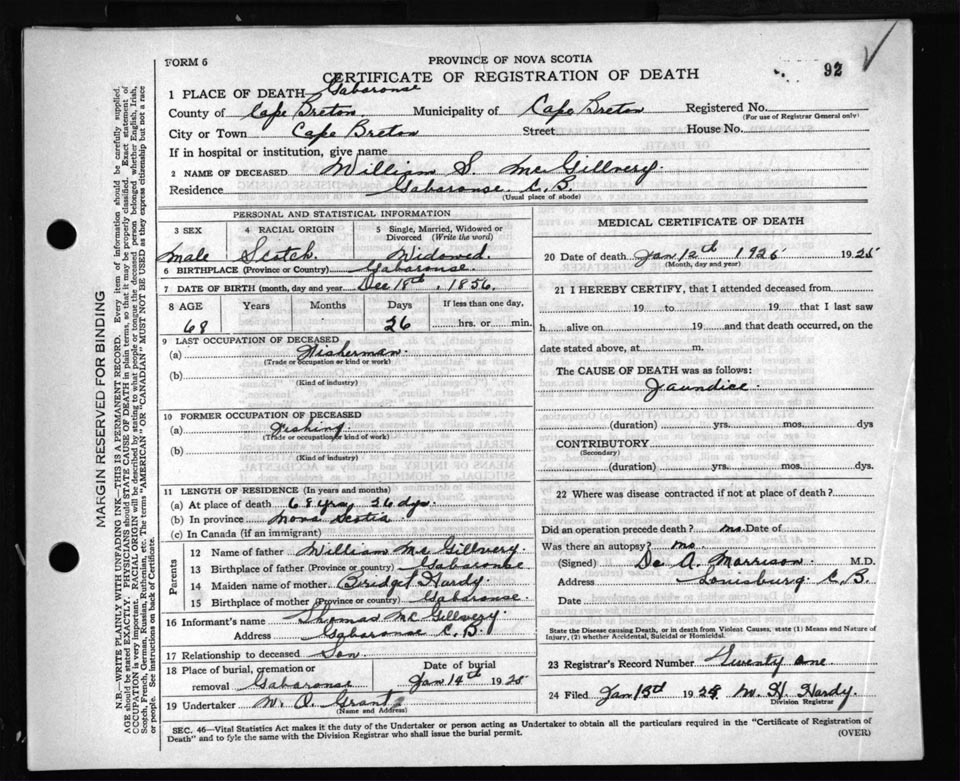 FORM 6
PROVINCE OF NOVA SCOTIA
CERTIFICATE OF REGISTRATION OF DEATH
92
1 PLACE OF DEATH Gabarouse
County of Cape Breton Municipality of Cape Breton Registered No.
(For use of Registrar General only)
City or Town Cape Breton Street House No.
If in hospital or institution, give name
2 NAME OF DECEASED William S. McGillvery.
Residence Gabarouse. C.B.
(Usual place of abode)
PERSONAL AND STATISTICAL INFORMATION
3 SEX 4 RACIAL ORIGIN 5 Single, Married, Widowed or Divorced (Write the word)
male Scotch. Widowed.
6 BIRTHPLACE (Province or Country) Gabarouse.
7 DATE OF BIRTH (month, day and year) Dec 18th, 1856.
8 AGE Years Months Days If less than one day,
68 26 hrs. or min.
9 LAST OCCUPATION OF DECEASED
(a) Fisherman.
(Trade or occupation or kind or work)
(b)
(Kind of industry)
10 FORMER OCCUPATION OF DECEASED
(a) Fishing.
(Trade or occupation or kind of work)
(b)
(Kind of industry)
11 LENGTH OF RESIDENCE (In years and months)
(a) At place of death 68 yrs, 26 dys.
(b) In province Nova Scotia.
(c) In Canada (if an immigrant)
Parents
12 Name of father William McGillvery.
13 Birthplace of father (Province or country) Gabarouse
14 Maiden name of mother Bridget Hardy.
15 Birthplace of mother (Province or country) Gabarouse.
16 Informant's name Thomas McGillvery
Address Gabarouse C.B.
17 Relationship to deceased Son.
18 Place of burial, cremation or removal Gabarouse
Date of burial
Jan 14th 1925
19 Undertaker W. A. Grant
(Name and Address)
MEDICAL CERTIFICATE OF DEATH
20 Date of death Jan 12th 1925 1925
(Month, day and year)
21 I HEREBY CERTIFY, that I attended deceased from
19 to 19 that I last saw
h alive on 19 and that death occurred, on the
date stated above, at m.
The CAUSE OF DEATH was as follows:
Jaundice.
(duration) yrs. mos. dys
CONTRIBUTORY
(Secondary)
(duration) yrs. mos. dys.
22 Where was disease contracted if not at place of death?
Did an operation precede death? no. Date of
Was there an autopsy? no.
(Signed) Dr A. Morrison M.D.
Address Louisburg C.B.
Date
State the Disease causing Death, or in death from Violent Causes, state (1) Means and Nature of
Injury, (2) whether Accidental, Suicidal or Homicidal.
23 Registrar's Record Number Twenty one
24 Filed Jan 13th 1925 M. H. Hardy.
Division Registrar
SEC. 46—Vital Statistics Act makes it the duty of the Undertaker or person acting as Undertaker to obtain all the particulars required in the "Certificate of Registration of
Death" and to fyle the same with the Division Registrar who shall issue the burial permit.
(OVER)
MARGIN RESERVED FOR BINDING
N.B.—WRITE PLAINLY WITH UNFADING INK—THIS IS A PERMANENT RECORD. Every item of Information should be carefully supplied.
AGE should be stated EXACTLY. PHYSICIANS should STATE CAUSE OF DEATH in plain terms, so that it may be properly classified. Exact statement of
OCCUPATION is very important. RACIAL ORIGIN will be described by stating to what people or tongue the deceased person belonged whether English, Irish,
Scotch, French, German, Russian, Ruthenian, etc. The terms "AMERICAN" OR "CANADIAN" MUST NOT BE USED as they express citizenship but not a race
or people. See instructions on back of Certificate.